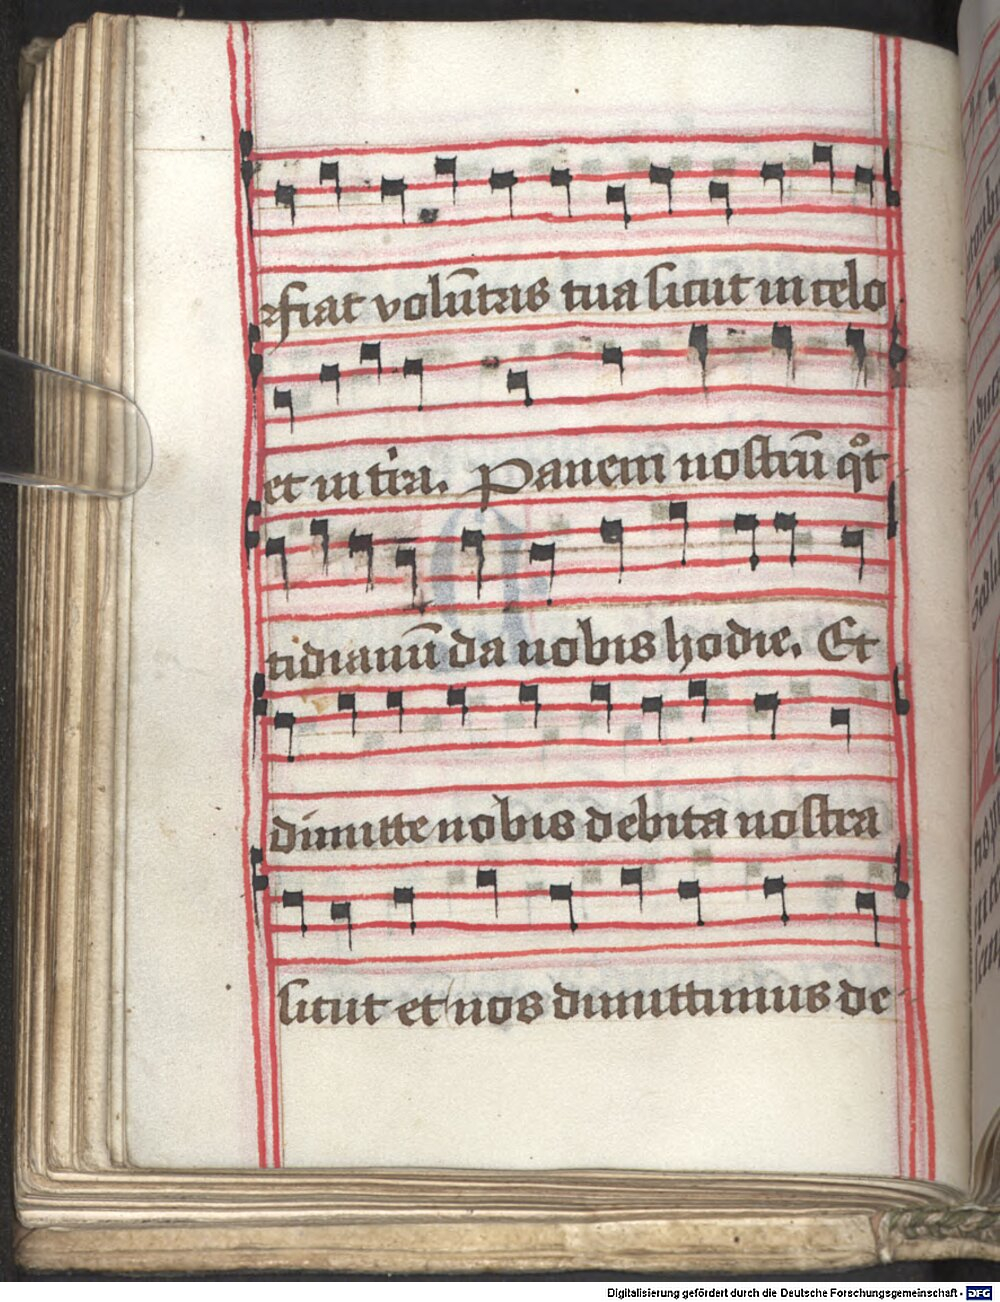 fiat volūtas tua sicut in celo
et in t̄ra. Panem nostrū q̊t
tidianū da nobis hodie. Et
dimitte nobis debita nostra
sicut et nos dimittimus de-
Digitalisierung gefördert durch die Deutsche Forschungsgemeinschaft - DFG